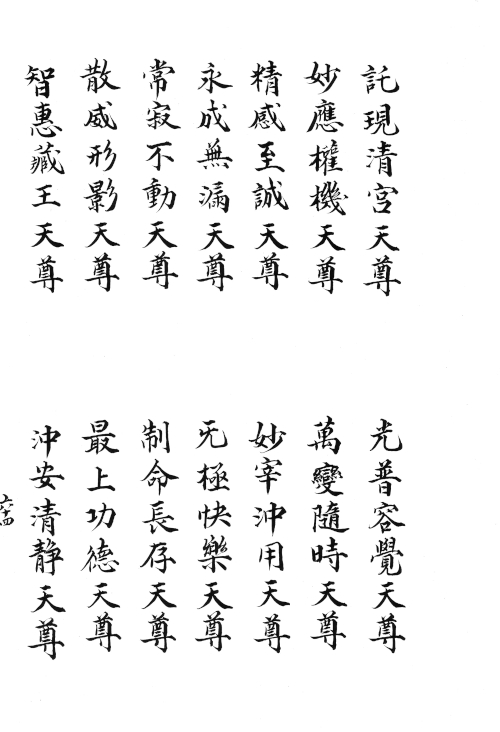 託現清宮天尊
光普容覺天尊
妙應權機天尊
萬變隨時天尊
精感至誠天尊
妙宰沖用天尊
永成無漏天尊
无極快樂天尊
常寂不動天尊
制命長存天尊
散威形影天尊
最上功德天尊
智惠藏王天尊
沖安清静天尊
六十四